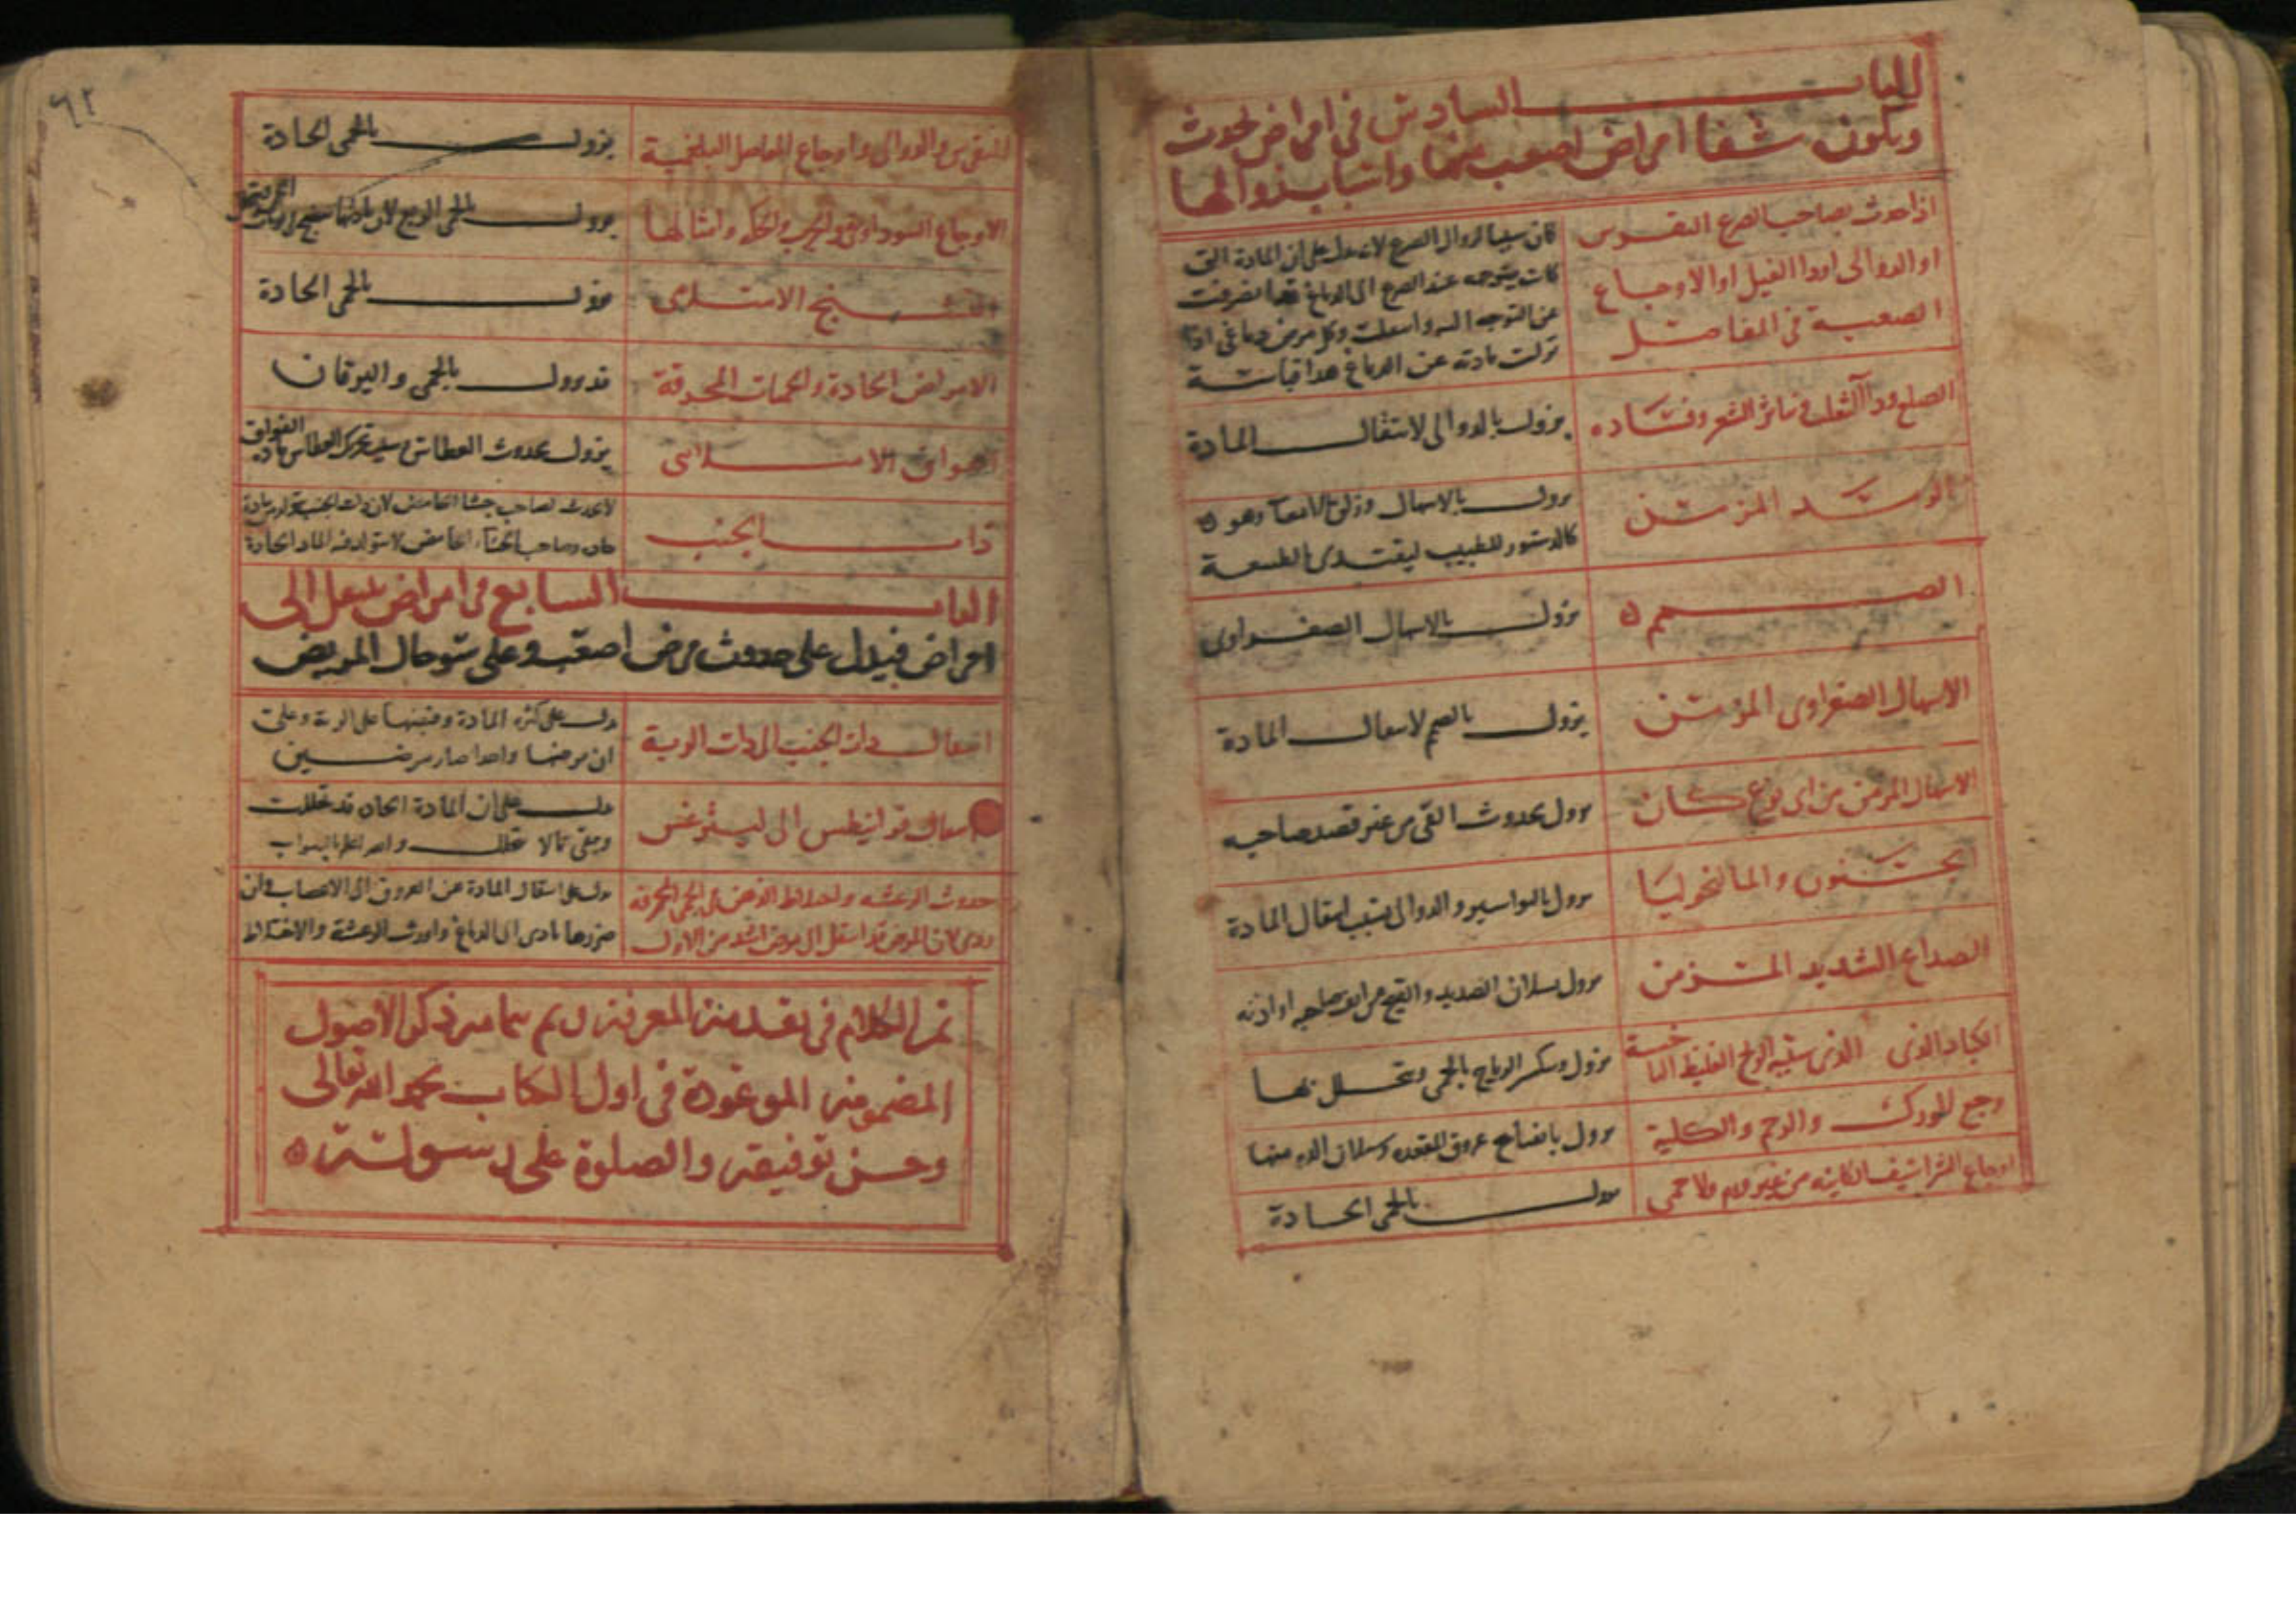 الباب السادس في امراض تحدث
ويكون شفا امراض اصعب منها واسباب زوالها
اذا حدث بصاحب الصرع النقرس
او الدوالى او دا الفيل او الاوجاع
الصعبة في المفاصل
كان سببا لزوال الصرع لانه يدل على ان المادة التى
كانت يتوجه عند الصرع الى الدماغ قد انصرفت
عن التوجه اليه وكل مرض دماغى اذا
نزلت مادته عن الدماغ هذا قياسه
الصلع ودآ الثعلب وتناثر الشعر وفساده
يزول بالدوالى لانتقال المادة
الرمد المزمن
يزول بالاسهال وزلق الامعآ وهو
كالدستور للطبيب ليقتدى بالطبيعة
الصمم
يزول بالاسهال الصفراوى
الاسهال الصفراوى المزمن
يزول بالصمم لانتقال المادة
الاسهال المزمن من اى نوع كان
يزول بحدوث القى من غير قصد صاحبه
الجنون والمالنخوليا
يزول بالبواسير والدوالى بسبب انتقال المادة
الصداع الشديد المزمن
يزول بسيلان الصديد والقيح من انف صاحبه او اذنه
الكباد الذى سببه الريح الغليظ
يزول وتنكسر الرياح بالحمى وتتحلل بها
وجع الورك والرحم والكلية
يزول بانفتاح عروق المقعدة وسيلان الدم منها
اوجاع الشراسيف الكاينة من غير ورم ولا حمى
يزول بالحمى الحادة
٦٢
النقرس والدوالى واوجاع المفاصل البلغمية
يزول بالحمى الحادة
الاوجاع السوداوية والجرب والحكة وامثالها
يزول بالحمى الربع
التشنج الامتلائى
يزول بالحمى الحادة
الامراض الحادة والحميات المحرقة
قد يزول بالحمى واليرقان
الفواق الامتلائى
يزول بحدوث العطاس بسبب تحريك العطاس مادة الفواق
ذات الجنب
لا يحدث لصاحب جشا الحامض لان ذات الجنب تتولد من مادة
حادة وصاحب الجشآ الحامض لا تتولد فيه المادة الحادة
الباب السابع في امراض تنتقل الى
امراض فيدل على حدوث مرض اصعب وعلى سو حال المريض
انتقال ذات الجنب الى ذات الرية
يدل على كثرة المادة وفيضها على الرية وعلى
ان مرضها واحدا صار مرضين
انتقال قرانيطس الى ليثرغس
يدل على ان المادة الحادة قد تحللت
وبقى ما لا يتحلل والله اعلم بالصواب
حدوث الرعشة واختلاط الذهن في الحمى المحرقة
ردى لان المرض قد انتقل الى مرض اشد من الاول
يدل على انتقال المادة من العروق الى الاعصاب وان
ضررها تادى الى الدماغ واورث الرعشة والاختلاط
تم الكلام في تقدمة المعرفة وتم بتمامه ذكر الاصول
المضمونة الموعودة في اول الكتاب بحمد الله تعالى
وحسن توفيقه والصلوة على رسوله